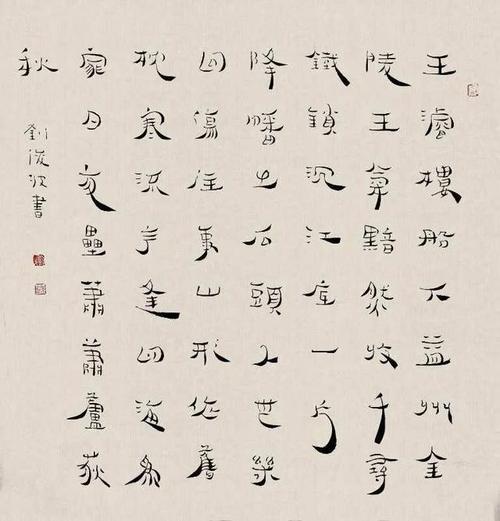 王濬樓船下益州金
陵王氣黯然收千尋
鐵鎖沉江底一片
降幡出石頭人世幾
回傷往事山形依舊
枕寒流今逢四海為
家日故壘蕭蕭蘆荻
秋
劉波書